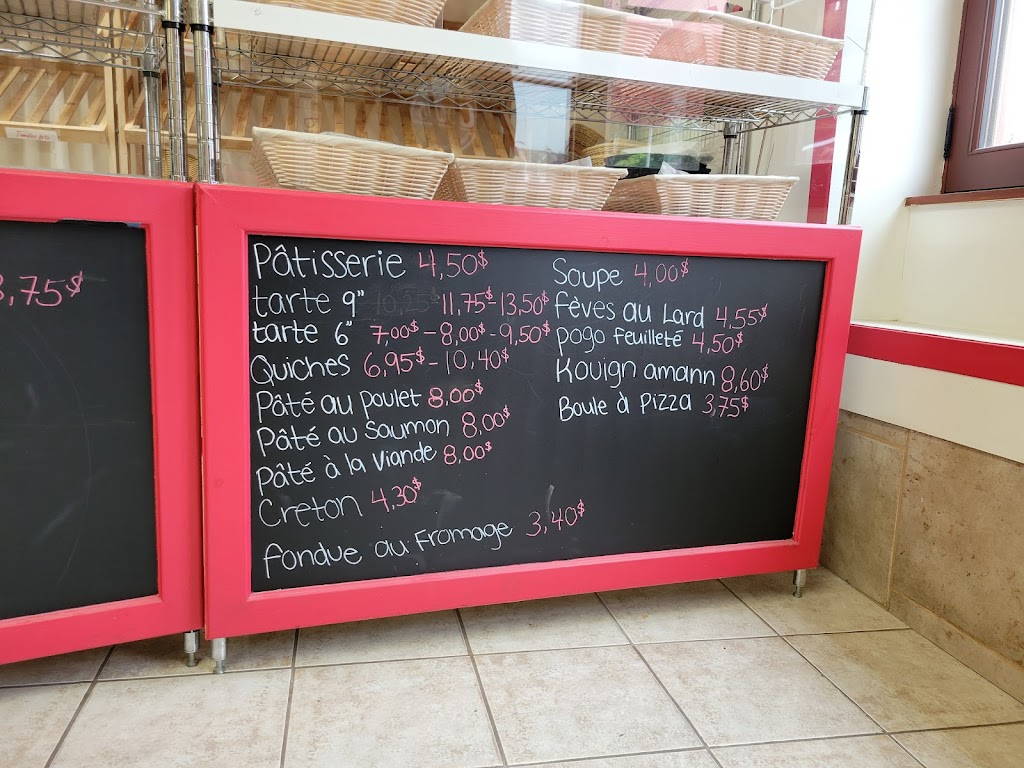 3,75$
Pâtisserie 4,50$
tarte 9" 11,75$-13,50$
tarte 6" 7,00$-8,00$-9,50$
Quiches 6,95$-10,40$
Pâté au poulet 8,00$
Pâté au Saumon 8,00$
Pâté à la Viande 8,00$
Creton 4,30$
fondue au Fromage 3,40$
Soupe 4,00$
fèves au Lard 4,55$
pogo feuilleté 4,50$
Kouign amann 8,60$
Boule à Pizza 3,75$